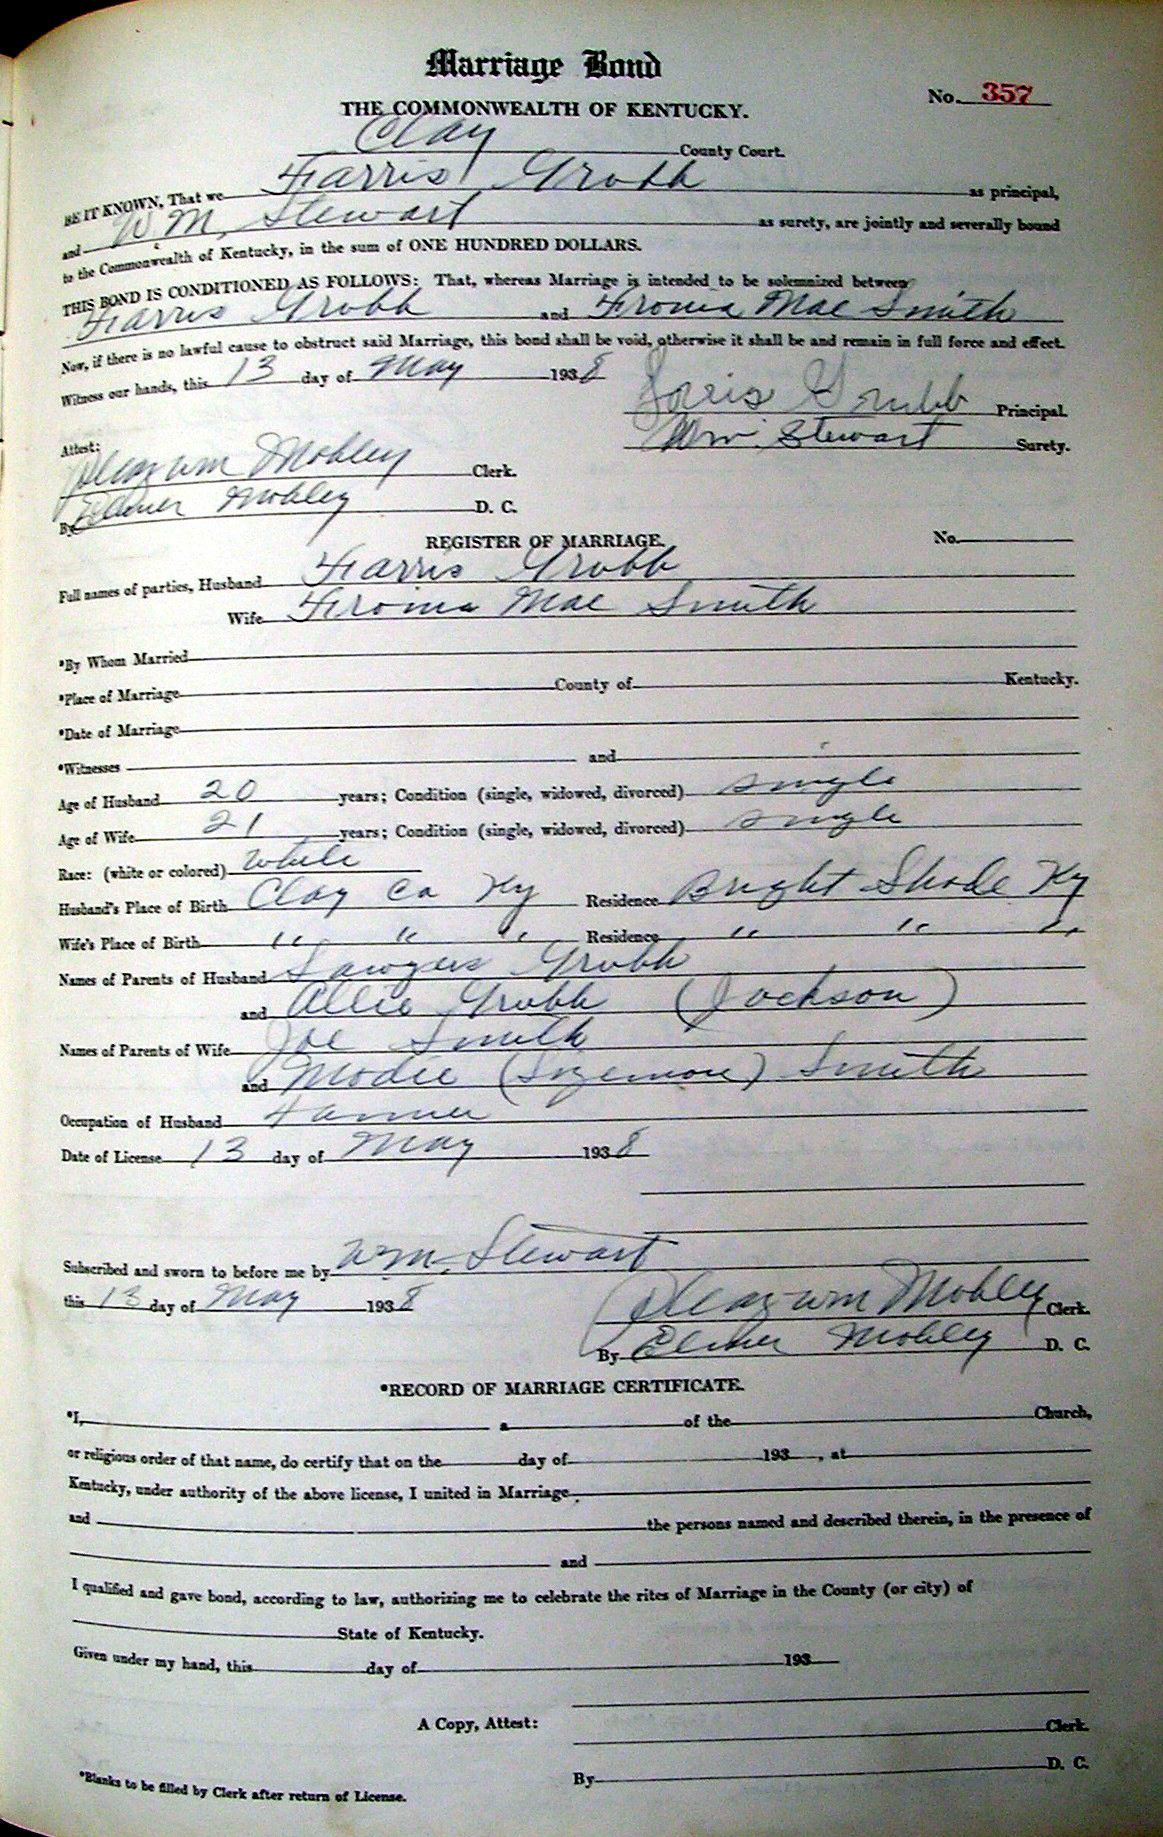 Marriage Bond
No. 357
THE COMMONWEALTH OF KENTUCKY.
Clay County Court.
BE IT KNOWN, That we Farris Grubb as principal,
and W. M. Stewart as surety, are jointly and severally bound
to the Commonwealth of Kentucky, in the sum of ONE HUNDRED DOLLARS.
THIS BOND IS CONDITIONED AS FOLLOWS: That, whereas Marriage is intended to be solemnized between
Farris Grubb and Mae Smith
Now, if there is no lawful cause to obstruct said Marriage, this bond shall be void, otherwise it shall be and remain in full force and effect.
Witness our hands, this 13 day of May 1938
Grubb Principal.
Wm. Stewart Surety.
Attest:
Wm Mobley Clerk.
By Elmer Mobley D. C.
REGISTER OF MARRIAGE. No.
Full names of parties, Husband Farris Grubb
Wife Mae Smith
*By Whom Married
*Place of Marriage County of Kentucky.
*Date of Marriage
*Witnesses and
Age of Husband 20 years; Condition (single, widowed, divorced) single
Age of Wife 21 years; Condition (single, widowed, divorced) single
Race: (white or colored) White
Husband's Place of Birth Clay Co Ky Residence Bright Shade Ky
Wife's Place of Birth " " " Residence " " "
Names of Parents of Husband Sawyers Grubb
and Allie Grubb (Jackson)
Names of Parents of Wife Joe Smith
and Modie (Sizemore) Smith
Occupation of Husband Farmer
Date of License 13 day of May 1938
Subscribed and sworn to before me by Wm. Stewart
this 13 day of May 1938
Wm Mobley Clerk.
By Elmer Mobley D. C.
*RECORD OF MARRIAGE CERTIFICATE.
*I, a of the Church,
or religious order of that name, do certify that on the day of 193 , at
Kentucky, under authority of the above license, I united in Marriage
and the persons named and described therein, in the presence of
and
I qualified and gave bond, according to law, authorizing me to celebrate the rites of Marriage in the County (or city) of
State of Kentucky.
Given under my hand, this day of 193
A Copy, Attest: Clerk.
By D. C.
*Blanks to be filled by Clerk after return of License.